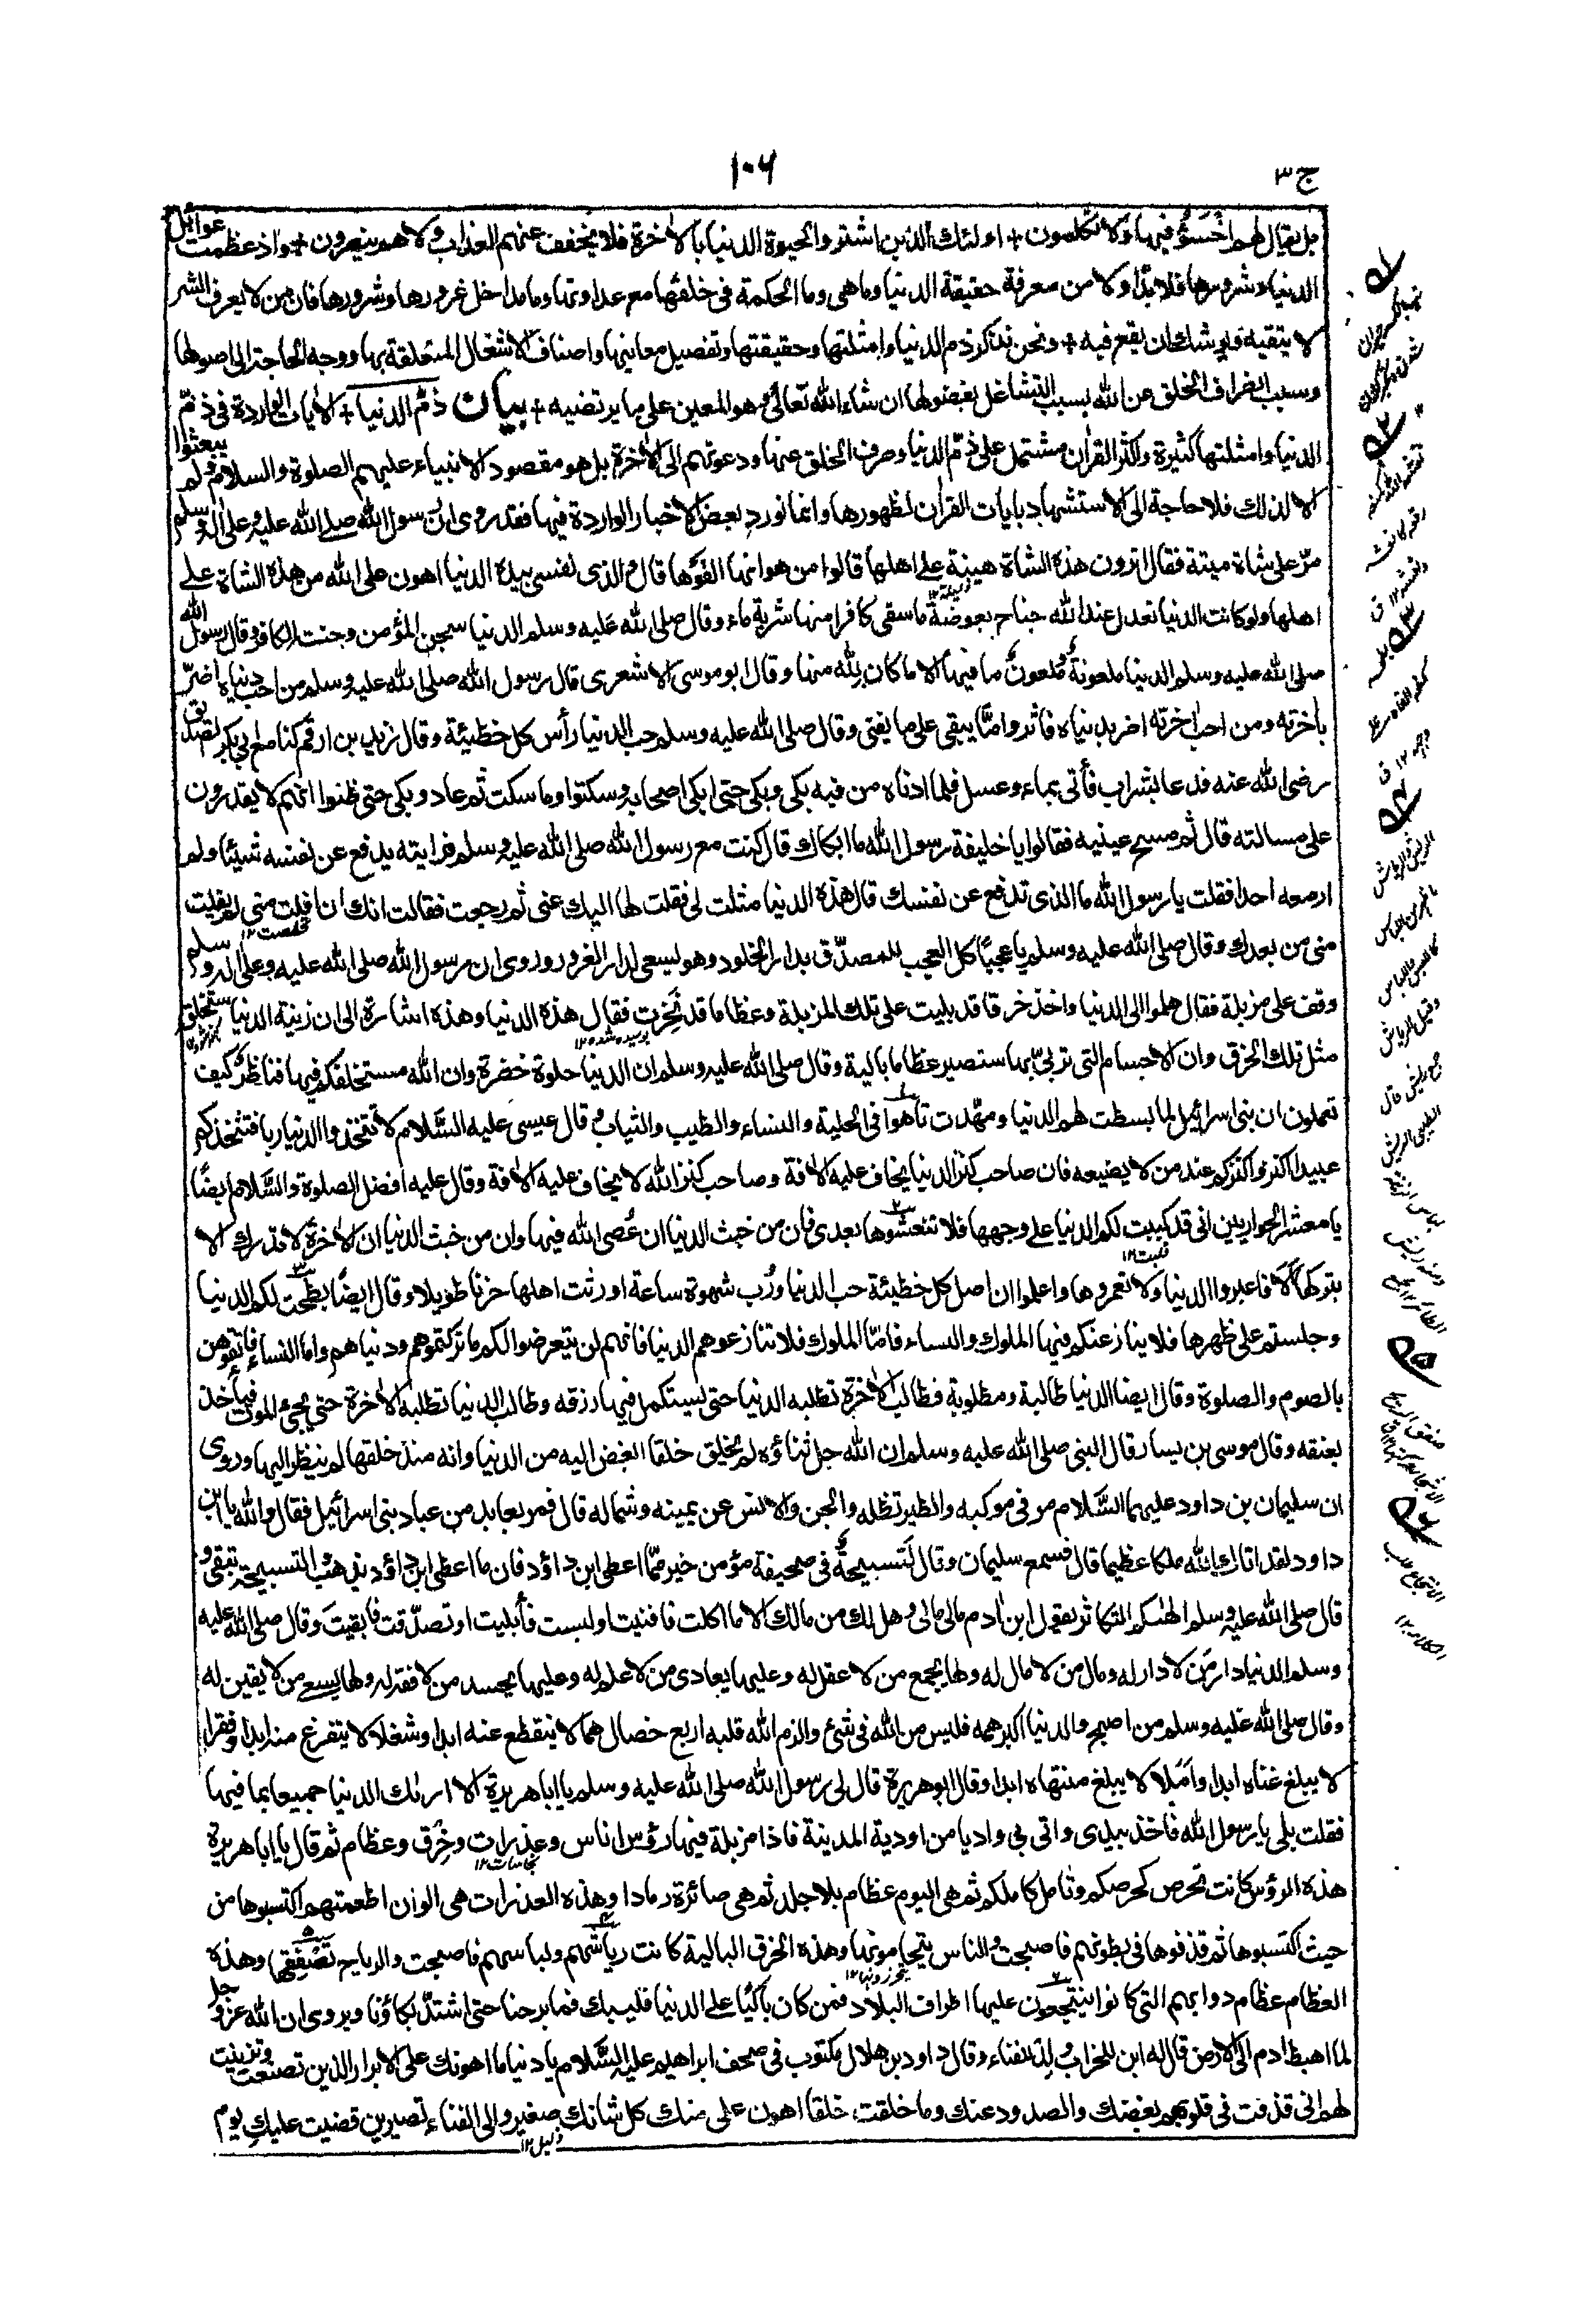 ج ٣
١٠٦
بل يقال لهم اخسؤا فيها ولا تكلمون + اولئك الذين اشتروا الحيوة الدنيا بالاخرة فلا يخفف عنهم العذاب ولا هم ينصرون + واذ عظمت غوائل
الدنيا وشرورها فلا بد اولا من معرفة حقيقة الدنيا وما هى وما الحكمة فى خلقها مع عداوتها وما مداخل غرورها وشرورها فان من لا يعرف الشر
لا يتقيه فيوشك ان يقع فيه + ونحن نذكر ذم الدنيا وامثلتها وحقيقتها وتفصيل معانيها واصناف الاشغال المتعلقة بها ووجه الحاجة الى اصولها
وسبب انصراف الخلق عن الله بسبب التشاغل بفضولها ان شاء الله تعالى وهو المعين على ما يرتضيه + بيان ذم الدنيا + الأيات الواردة فى ذم
الدنيا وامثلتها كثيرة واكثر القرأن مشتمل على ذم الدنيا وصرف الخلق عنها ودعوتهم الى الاخرة بل هو مقصود الانبياء عليهم الصلوة والسلام ولم يبعثوا
الا لذلك فلا حاجة الى الاستشهاد بأيات القرأن لظهورها وانما نورد بعض الاخبار الواردة فيها فقد روى ان رسول الله صلى الله عليه وعلى اله وسلم
مر على شاة ميتة فقال اترون هذه الشاة هينة على اهلها قالوا من هوانها القوها قال والذى نفسى بيده الدنيا اهون على الله من هذه الشاة على
اهلها ولو كانت الدنيا تعدل عند الله جناح بعوضة ما سقى كافرا منها شربة ماء وقال صلى الله عليه وسلم الدنيا سجن المؤمن وجنت الكافر وقال رسول الله
صلى الله عليه وسلم الدنيا ملعونة ملعون ما فيها الا ما كان لله منها وقال ابو موسى الاشعرى قال رسول الله صلى الله عليه وسلم من احب دنياه اضر
باخرته ومن احب اخرته اضر بدنياه فأثروا ما يبقى على ما يفنى وقال صلى الله عليه وسلم حب الدنيا رأس كل خطيئة وقال زيد بن ارقم كنا مع ابى بكر الصديق
رضى الله عنه فدعا بشراب فأتى بماء وعسل فلما ادناه من فيه بكى وبكى حتى ابكى اصحابه وسكتوا وما سكت ثم عاد وبكى حتى ظنوا انهم لا يقدرون
على مسألته قال ثم مسح عينيه فقالوا يا خليفة رسول الله ما ابكاك قال كنت مع رسول الله صلى الله عليه وسلم فرايته يدفع عن نفسه شيئا ولم
ار معه احدا فقلت يا رسول الله ما الذى تدفع عن نفسك قال هذه الدنيا مثلت لى فقلت لها اليك عنى ثم رجعت فقالت انك ان افلت منى لم يفلت
منى من بعدك وقال صلى الله عليه وسلم يا عجبًا كل العجب للمصدق بدار الخلود وهو يسعى لدار الغرور وروى ان رسول الله صلى الله عليه وعلى اله وسلم
وقف على مزبلة فقال هلموا الى الدنيا واخذ خرقا قد بليت على تلك المزبلة وعظاما قد نخرت فقال هذه الدنيا وهذه اشارة الى ان زينة الدنيا ستخلق
مثل تلك الخرق وان الاجسام التى تربى بها ستصير عظاما بالية وقال صلى الله عليه وسلم ان الدنيا حلوة خضرة وان الله مستخلفكم فيها فناظر كيف
تعملون ان بنى اسرائيل لما بسطت لهم الدنيا ومهدت تاهوا فى الحلية والنساء والطيب والثياب وقال عيسى عليه السلام لا تتخذوا الدنيا ربا فتتخذكم
عبيدا اكنزوا كنزكم عند من لا يضيعه فان صاحب كنز الدنيا يخاف عليه الأفة وصاحب كنز الله لا يخاف عليه الأفة وقال عليه افضل الصلوة والسلام ايضًا
يا معشر الحواريين انى قد كببت لكم الدنيا على وجهها فلا تنعشوها بعدى فان من خبث الدنيا ان عصى الله فيها وان من خبث الدنيا ان الاخرة لا تدرك الا
بتركها الا فاعبروا الدنيا ولا تعمروها واعلموا ان اصل كل خطيئة حب الدنيا ورب شهوة ساعة اورثت اهلها حزنا طويلا وقال ايضًا بطحت لكم الدنيا
وجلستم على ظهرها فلا ينازعنكم فيها الملوك والنساء فاما الملوك فلا تنازعوهم الدنيا فانهم لن يتعرضوا لكم ما تركتموهم ودنياهم واما النساء فاتقوهن
بالصوم والصلوة وقال ايضا الدنيا طالبة ومطلوبة فطالب الاخرة تطلبه الدنيا حتى يستكمل فيها رزقه وطالب الدنيا تطلبه الاخرة حتى يجئ الموت فيأخذ
بعنقه وقال موسى بن يسار قال النبى صلى الله عليه وسلم ان الله جل ثناؤه لم يخلق خلقا ابغض اليه من الدنيا وانه منذ خلقها لم ينظر اليها وروى
ان سليمان بن داود عليهما السلام مر فى موكبه والطير تظله والجن والانس عن يمينه وشماله قال فمر بعابد من عباد بنى اسرائيل فقال والله يا ابن
داود لقد اتاك الله ملكا عظيما قال فسمع سليمان وقال لتسبيحة فى صحيفة مؤمن خير مما اعطى ابن داؤد فان ما اعطى ابن داؤد يذهب والتسبيحة تبقى و
قال صلى الله عليه وسلم الهكم التكاثر يقول ابن ادم مالى مالى وهل لك من مالك الا ما اكلت فافنيت او لبست فأبليت او تصدقت فابقيت وقال صلى الله عليه
وسلم الدنيا دار من لا دار له ومال من لا مال له ولها يجمع من لا عقل له وعليها يعادى من لا علم له وعليها يحسد من لا فقه له ولها يسعى من لا يقين له
وقال صلى الله عليه وسلم من اصبح والدنيا اكبر همه فليس من الله فى شئ والزم الله قلبه اربع خصال هما لا ينقطع عنه ابدا وشغلا لا يتفرغ منه ابدا وفقرا
لا يبلغ غناه ابدا واملا لا يبلغ منتهاه ابدا وقال ابو هريرة قال لى رسول الله صلى الله عليه وسلم يا ابا هريرة الا اريك الدنيا جميعا بما فيها
فقلت بلى يا رسول الله فاخذ بيدى واتى بى واديا من اودية المدينة فاذا مزبلة فيها رؤس اناس وعذرات وخرق وعظام ثم قال يا ابا هريرة
هذه الرؤس كانت تحرص كحرصكم وتامل كاملكم ثم هى اليوم عظام بلا جلد ثم هى صائرة رمادا وهذه العذرات هى الوان اطعمتهم اكتسبوها من
حيث اكتسبوها ثم قذفوها فى بطونهم فاصبحت والناس يتحامونها وهذه الخرق البالية كانت رياشهم ولباسهم فاصبحت والرياح تصفقها وهذه
العظام عظام دوابهم التى كانوا ينتجعون عليها اطراف البلاد فمن كان باكيًا على الدنيا فليبك فما برحنا حتى اشتد بكاؤنا ويروى ان الله عز وجل
لما اهبط ادم الى الارض قال له ابن للخراب ولد للفناء وقال داود بن هلال مكتوب فى صحف ابراهيم عليه السلام يا دنيا ما اهونك على الابرار الذين تصنعت وتزينت
لهم انى قذفت فى قلوبهم بغضك والصدود عنك وما خلقت خلقا اهون على منك كل شانك صغير والى الفناء تصيرين قضيت عليك يوم